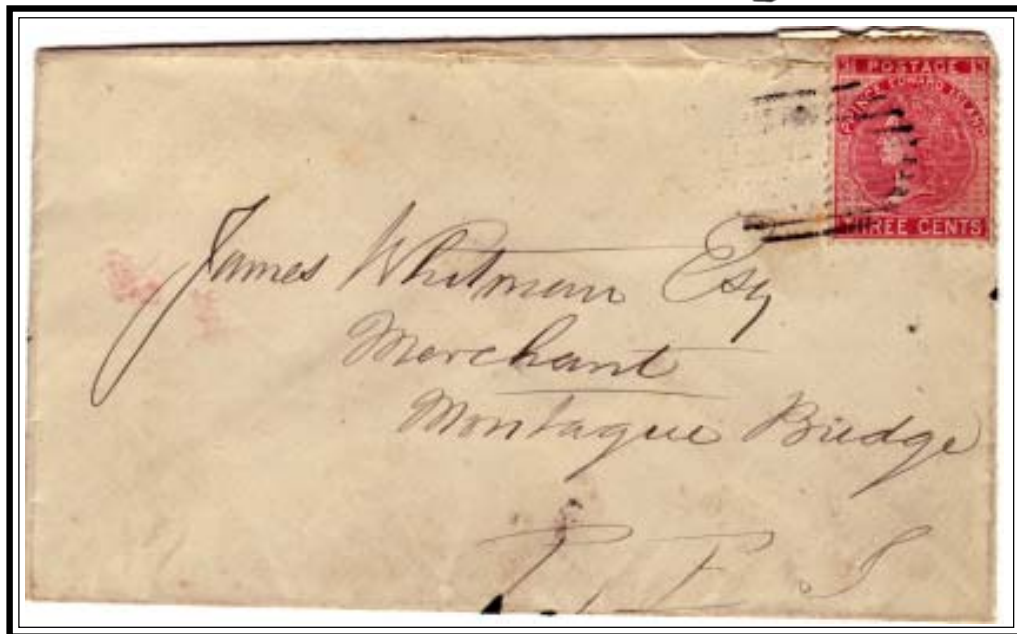 3 POSTAGE 3
PRINCE EDWARD ISLAND
THREE CENTS
James Whitman Esq
Merchant
Montague Bridge
P. E. I